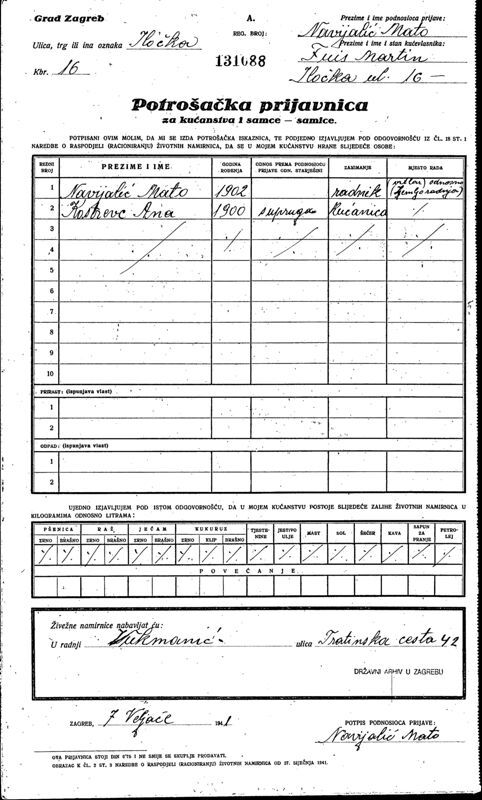 Grad Zagreb
Ulica, trg ili ina oznaka Iločka
Kbr. 16
A.
REG. BROJ:
131088
Prezime i ime podnosioca prijave:
Navijalić Mato
Prezime i ime i stan kućevlasnika:
Fuis Martin
Iločka ul. 16 —
Potrošačka prijavnica
za kućanstva i samce — samice.
POTPISANI OVIM MOLIM, DA MI SE IZDA POTROŠAČKA ISKAZNICA, TE PODJEDNO IZJAVLJUJEM POD ODGOVORNOŠĆU IZ ČL. 15 ST. 1
NAREDBE O RASPODJELI (RACIONIRANJU) ŽIVOTNIH NAMIRNICA, DA SE U MOJEM KUĆANSTVU HRANE SLIJEDEĆE OSOBE:
REDNI BROJ PREZIME I IME GODINA ROĐENJA ODNOS PREMA PODNOSIOCU PRIJAVE ODN. STARJEŠINI ZANIMANJE MJESTO RADA
1 Navijalić Mato 1902 radnik odnosno
2 Kostrevc Ana 1900 supruga kućanica
3
4
5
6
7
8
9
10
PRIRAST: (ispunjava vlast)
1
2
OTPAD: (ispunjava vlast)
1
2
UJEDNO IZJAVLJUJEM POD ISTOM ODGOVORNOŠĆU, DA U MOJEM KUĆANSTVU POSTOJE SLIJEDEĆE ZALIHE ŽIVOTNIH NAMIRNICA U
KILOGRAMIMA ODNOSNO LITRAMA:
PŠENICA RAŽ JEČAM KUKURUZ TJESTENINE JESTIVO ULJE MAST SOL ŠEĆER KAVA SAPUN ZA PRANJE PETROLEJ
ZRNO BRAŠNO ZRNO BRAŠNO ZRNO BRAŠNO ZRNO KLIP BRAŠNO
POVEĆANJE
Živežne namirnice nabavljat ću:
U radnji Vukmanić - ulica Tratinska cesta 42
DRŽAVNI ARHIV U ZAGREBU
ZAGREB, 7 Veljače 1941
POTPIS PODNOSIOCA PRIJAVE:
Navijalić Mato
OVA PRIJAVNICA STOJI DIN 0'75 I NE SMIJE SE SKUPLJE PRODAVATI.
OBRAZAC K ČL. 2 ST. 3 NAREDBE O RASPODJELI (RACIONIRANJU) ŽIVOTNIH NAMIRNICA OD 27. SIJEČNJA 1941.